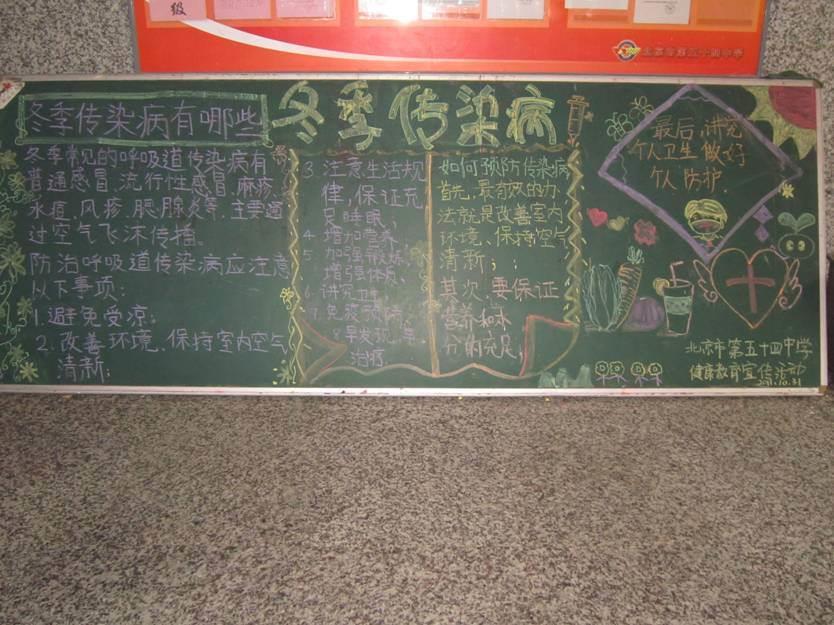 级
北京市第五十四中学
冬季传染病有哪些
冬季常见的呼吸道传染病有
普通感冒、流行性感冒、麻疹、
水痘、风疹、腮腺炎等、主要通
过空气飞沫传播。
防治呼吸道传染病应注意
以下事项:
1.避免受凉。
2.改善环境、保持室内空气
清新;
冬季传染病
3、注意生活规
律,保证充
足睡眠、
4、增加营养、
5、加强锻炼、
增强体质、
6、讲究卫生
7、免疫预防
早发现、早
治疗
如何预防传染病
首先,最有效的办
法就是改善室内
环境、保持空气
清新;
其次,要保证
营养和水
分的充足,
最后,讲究
个人卫生做好
个人防护.
北京市第五十四中学
健康教育宣传活动
2011.10.31